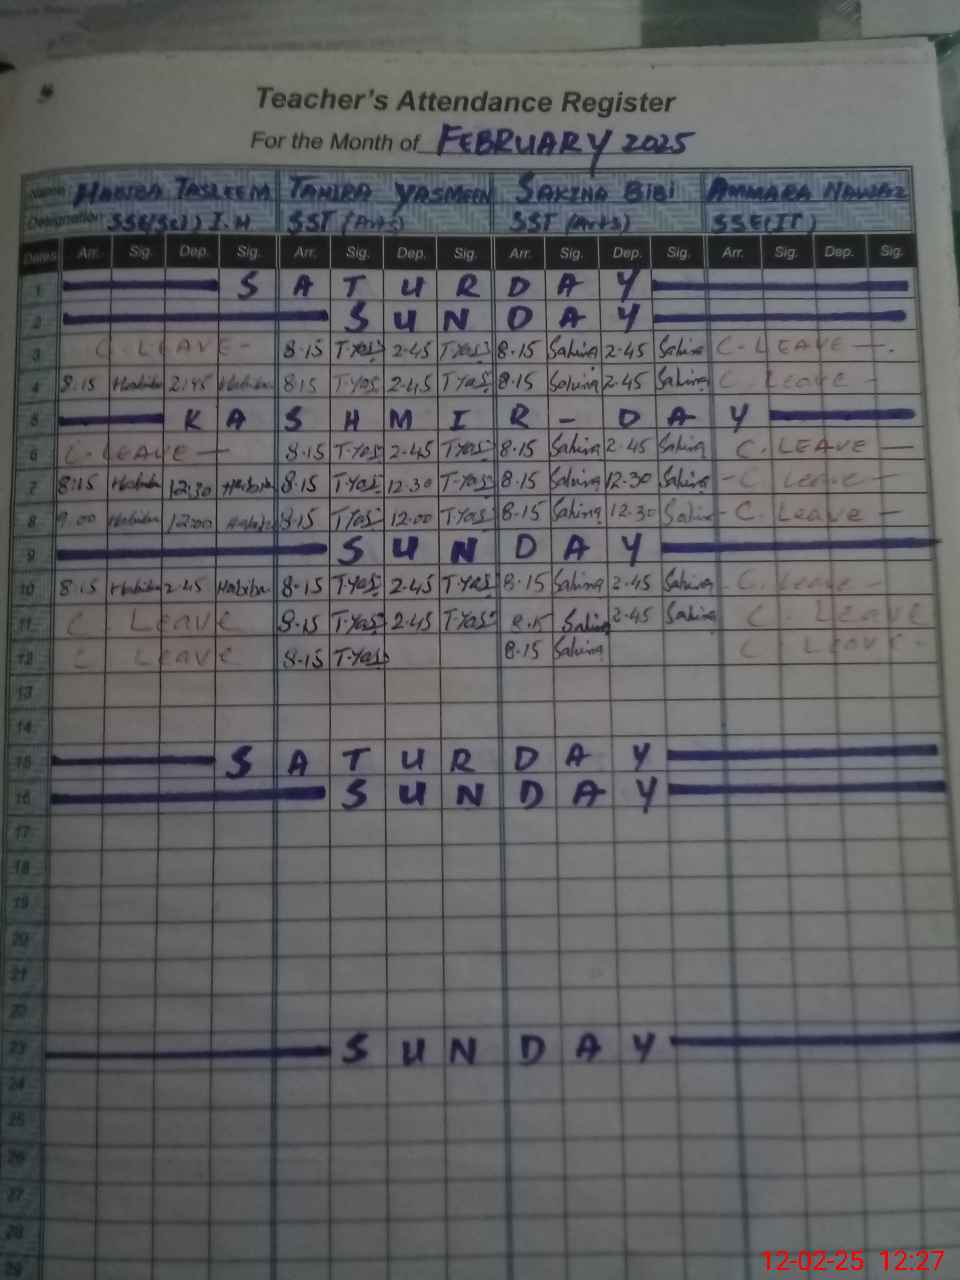 Teacher's Attendance Register
For the Month of FEBRUARY 2025
Name HABIBA TASLEEM TAHIRA YASMEEN SAKINA BIBI AMMARA NAWAZ
Designation SSE(Sci) I.H SST (Arts) SST (Arts) SSE(IT)
Dates Arr. Sig. Dep. Sig. Arr. Sig. Dep. Sig. Arr. Sig. Dep. Sig. Arr. Sig. Dep. Sig.
1 SATURDAY
2 SUNDAY
3 C. LEAVE - 8.15 T.Yas 2.45 T.Yas 8.15 Sakina 2.45 Sakina C. LEAVE -
4 8.15 Habiba 2.45 Habiba 8.15 T.Yas 2.45 T.Yas 8.15 Sakina 2.45 Sakina C. Leave -
5 KASHMIR - DAY
6 C. LEAVE - 8.15 T.Yas 2.45 T.Yas 8.15 Sakina 2.45 Sakina C. LEAVE -
7 8:15 Habiba 12:30 Habiba 8.15 T.Yas 12.30 T.Yas 8.15 Sakina 12.30 Sakina - C. Leave -
8 9.00 Habiba 12:00 Habiba 8.15 T.Yas 12.00 T.Yas 8.15 Sakina 12.30 Sakina - C. Leave -
9 SUNDAY
10 8.15 Habiba 2.45 Habiba 8.15 T.Yas 2.45 T.Yas 8.15 Sakina 2.45 Sakina - C. Leave -
11 C. Leave 8.15 T.Yas 2.45 T.Yas 8.15 Sakina 2.45 Sakina C. LEAVE
12 C. Leave 8.15 T.Yas 8.15 Sakina C. LEAVE -
13
14
15 SATURDAY
16 SUNDAY
17
18
19
20
21
23 SUNDAY
24
25
26
27
28
29
12-02-25 12:27